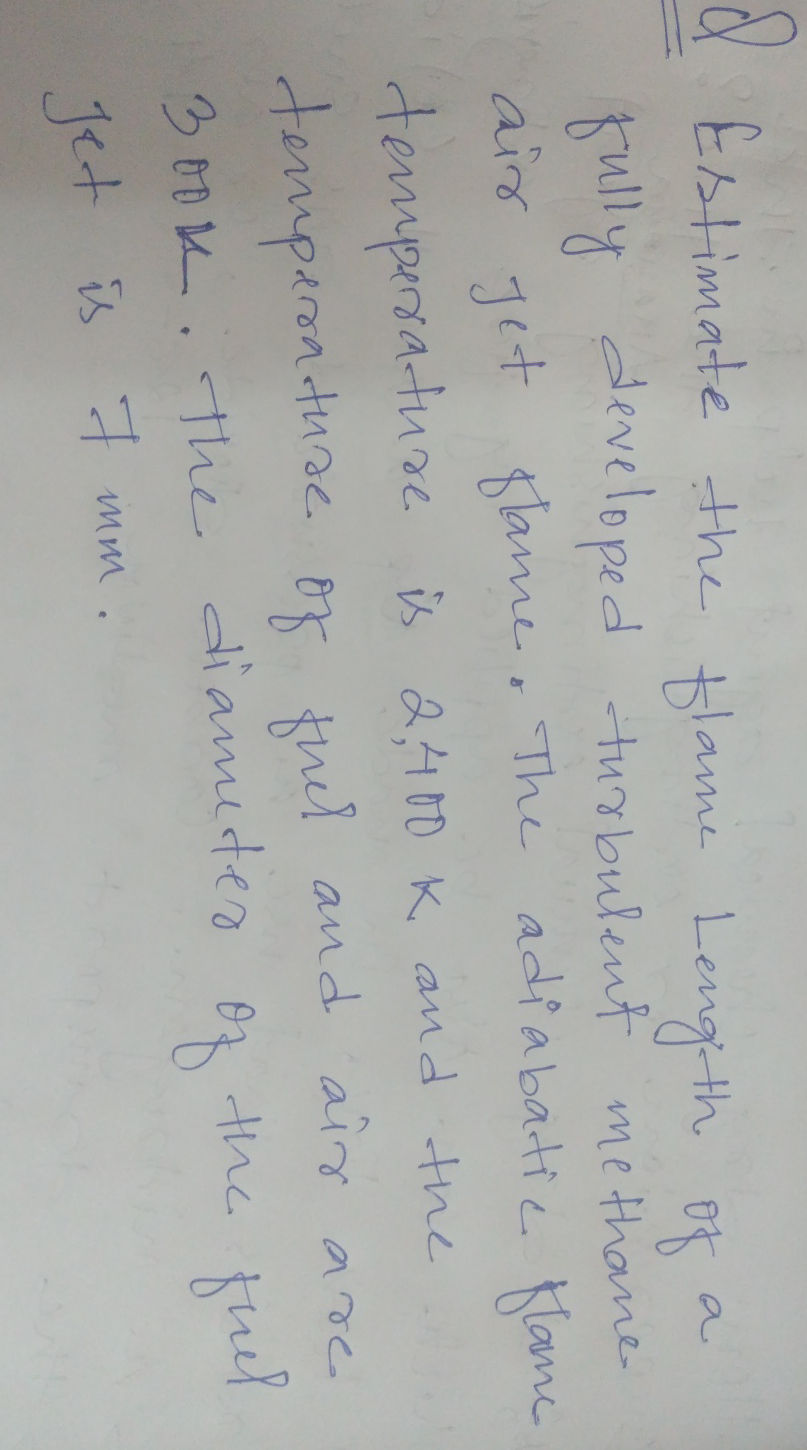 Q Estimate the flame Length of a
fully developed turbulent methane
air jet flame. The adiabatic flame
temperature is 2,400 K and the
temperature of fuel and air are
300K. The diameter of the fuel
jet is 7 mm.